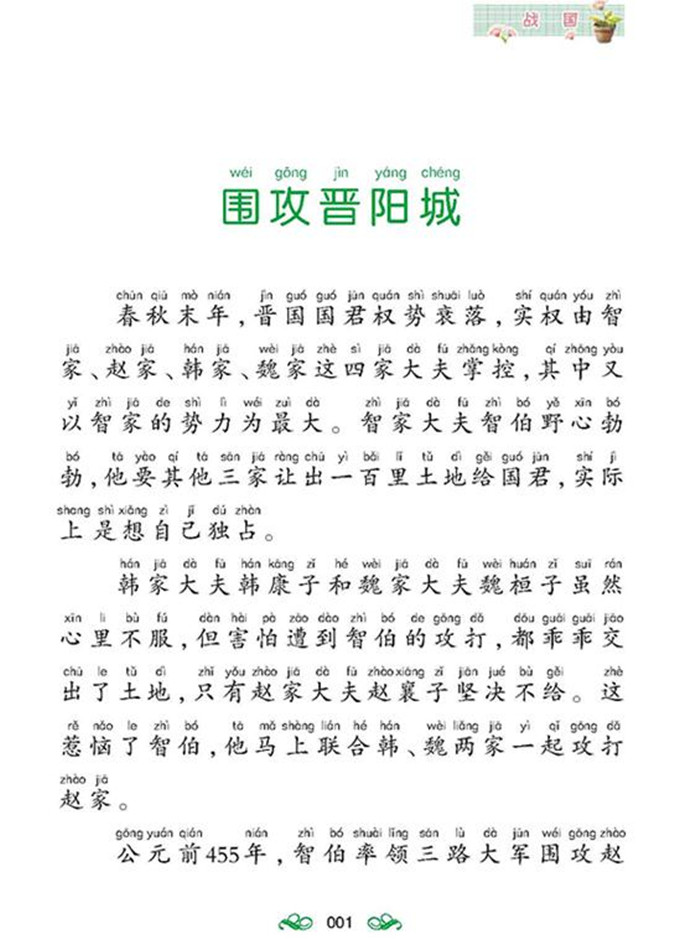 战 国
wéi gōng jìn yáng chéng
围攻晋阳城
chūn qiū mò nián jìn guó guó jūn quán shì shuāi luò shí quán yóu zhì
春秋末年,晋国国君权势衰落,实权由智
jiā zhào jiā hán jiā wèi jiā zhè sì jiā dà fū zhǎng kòng qí zhōng yòu
家、赵家、韩家、魏家这四家大夫掌控,其中又
yǐ zhì jiā de shì lì wéi zuì dà zhì jiā dà fū zhì bó yě xīn bó
以智家的势力为最大。智家大夫智伯野心勃
bó tā yào qí tā sān jiā ràng chū yì bǎi lǐ tǔ dì gěi guó jūn shí jì
勃,他要其他三家让出一百里土地给国君,实际
shang shì xiǎng zì jǐ dú zhàn
上是想自己独占。
hán jiā dà fū hán kāng zǐ hé wèi jiā dà fū wèi huán zǐ suī rán
韩家大夫韩康子和魏家大夫魏桓子虽然
xīn li bù fú dàn hài pà zāo dào zhì bó de gōng dǎ dōu guāi guāi jiāo
心里不服,但害怕遭到智伯的攻打,都乖乖交
chū le tǔ dì zhǐ yǒu zhào jiā dà fū zhào xiāng zǐ jiān jué bù gěi zhè
出了土地,只有赵家大夫赵襄子坚决不给。这
rě nǎo le zhì bó tā mǎ shàng lián hé hán wèi liǎng jiā yì qǐ gōng dǎ
惹恼了智伯,他马上联合韩、魏两家一起攻打
zhào jiā
赵家。
gōng yuán qián nián zhì bó shuài lǐng sān lù dà jūn wéi gōng zhào
公元前455年,智伯率领三路大军围攻赵
001